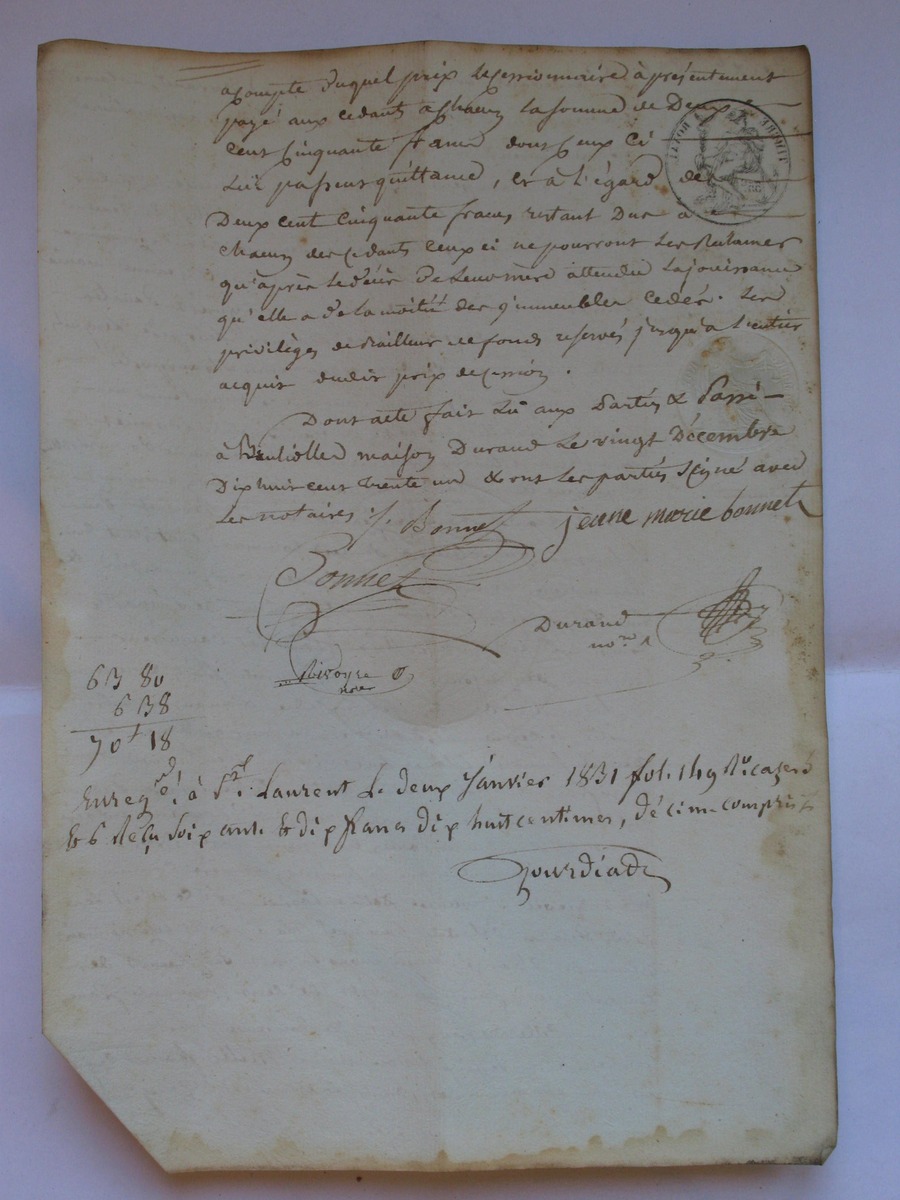 acompte duquel prix le cessionnaire à présentement
payé aux cedants a chacun la somme de Deux
cent cinquante francs dont ceux ci
lui passent quittance, et à l'égard des
Deux cent cinquante francs restant Dus a
chacun des cedants ceux ci ne pourront les Reclamer
qu'après le décès De leur mère attendu la jouissance
qu'elle a de la moitié des immeubles cedés. Les
privilèges de Bailleur de fonds reservés jusqu'a l'entier
acquit dudit prix de cession.
Dont acte fait Lu aux Parties & Passé
à maison Durand Le vingt Décembre
Dix huit cent trente un & ont les parties signé avec
les notaires J. Bonnet jeane marie bonnet
Bonnet
Durand
no.re
63 80
6 38
70f 18
Enregé. à St. Laurent le deux Janvier 1831 fol. 149
& 6 Reçu Soixante & dix francs dix huit centimes, décime compris